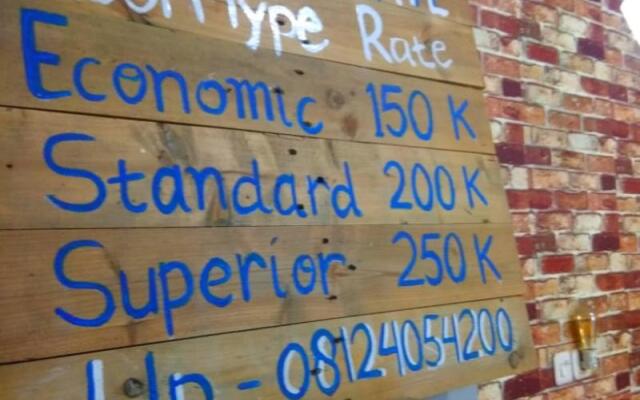 Type Rate
Economic 150 K
Standard 200 K
Superior 250 K
Hp - 08124054200